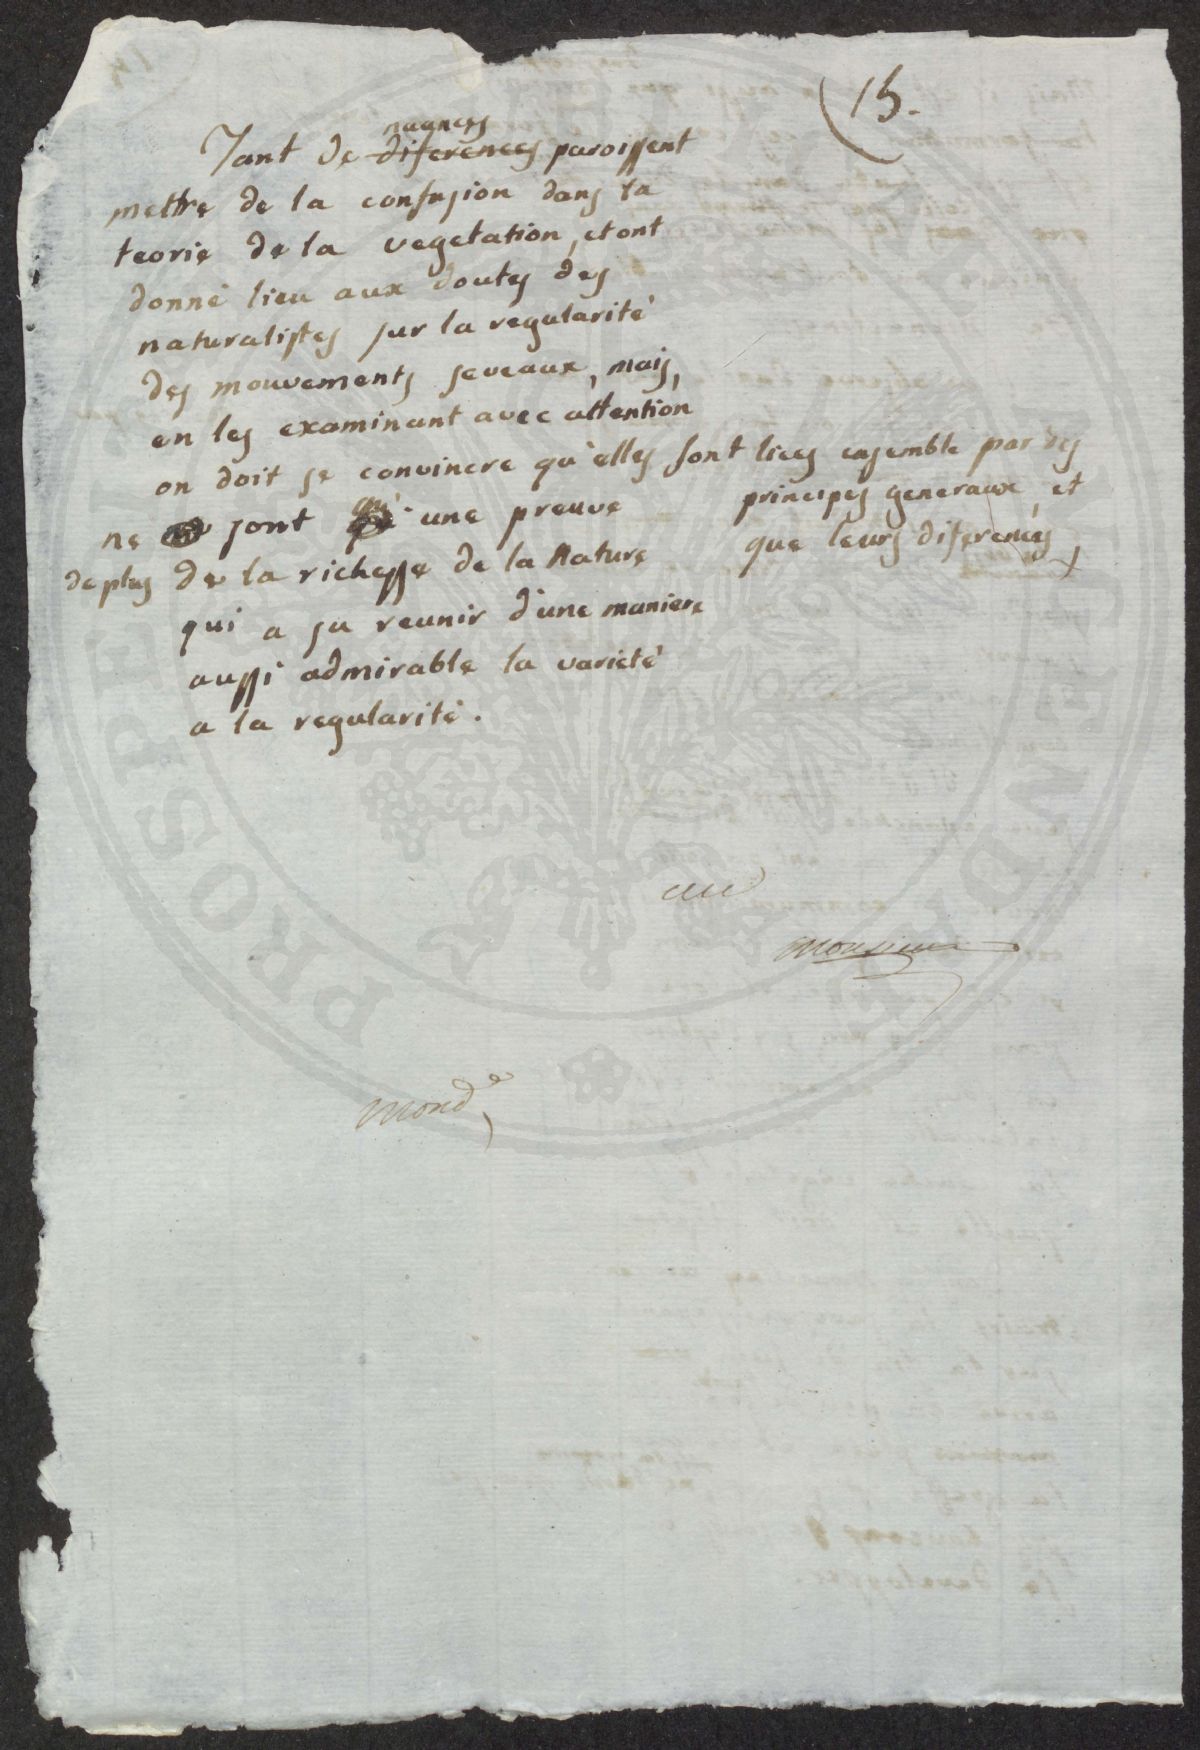 15.
nuances
Tant de diferences paroissent
mettre de la confusion dans la
teorie de la vegetation, et ont
donné lieu aux doutes des
naturalistes sur la regularité
des mouvements seveaux, mais,
en les examinant avec attention
on doit se convincre qu'elles sont liees ensemble par des
principes generaux, et
que leurs diferences,
ne sont qu'une preuve
de plus de la richesse de la Nature
qui a su reunir d'une maniere
aussi admirable la varieté
a la regularité.
au
monsieur
monde
PROSPE